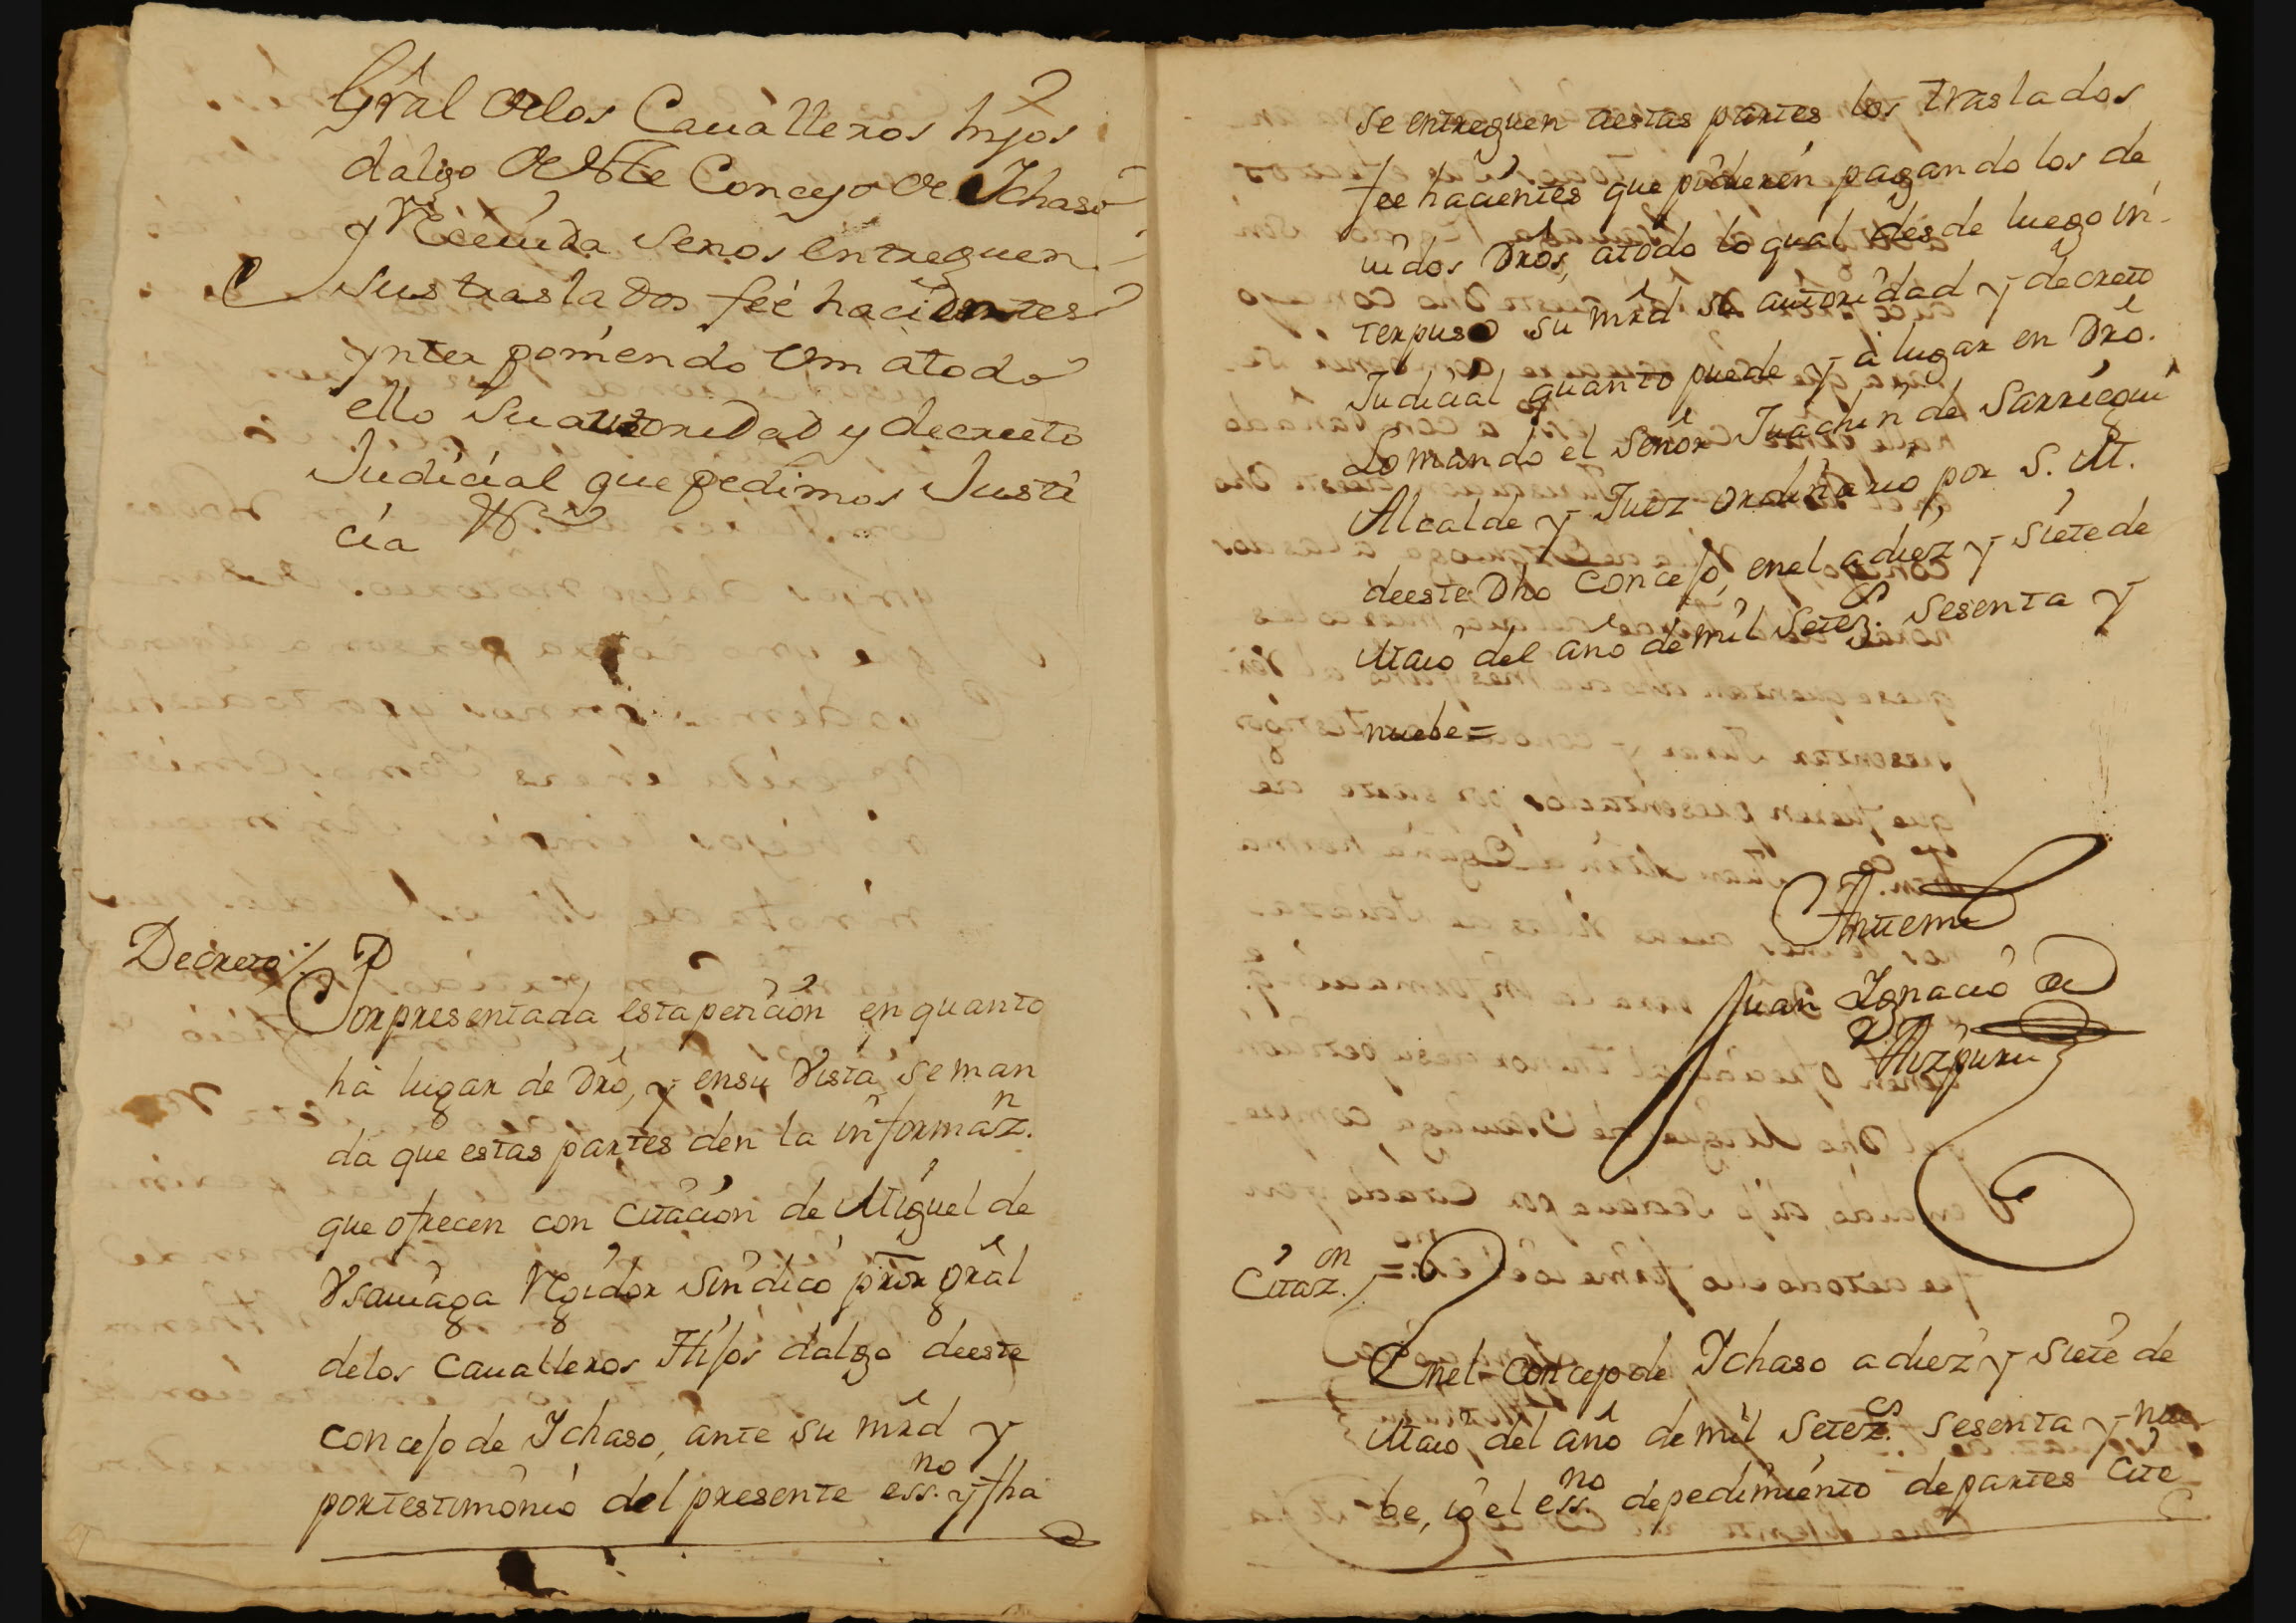 Grâl delos Cauàlleros hijos
dalgo de este Concejo de Ichaso
y Receuida senos entreguen
sus traslados feé hacientes
ynterponiendo Vm atodo
ello su autoridad y decreto
Judicial que pedimos Justi
cia
Decreto/.
Por presentada esta petición en quanto
há lugar de Drô, y en su Vista se man
da que estas partes den la informaz.n
que ofrecen con citación de Miguel de
Vsauiàga Rexidor Sindico prôr grâl
delos Caualleros Hijos dalgo deeste
Concejo de Ichaso, ante su mrd y
por testimonio del presente ess.no y fha
se entreguen aestas partes los traslados
fee hacientes que pidieren pagando los de
uidos Drôs, atodo lo qual desde luego in-
terpuso su mrd su autoridad y decreto
Judicial quanto puede y à lugar en Drô.
Lo mandó el Señor Juachin de Sarriegui
Alcalde y Juez ordinario por S. M.
deeste Dho Concejo, en el a diez y siete de
Maio del año de mil setez.s sesenta y
nuebe=
Ante mi
Juan Ignacio de
Aizpuru
Citaz.on/.
En el Concejo de Ichaso a diez y siete de
Maio del año de mil setez.os sesenta y nue
be, ió el ess.no de pedimiento de partes cite